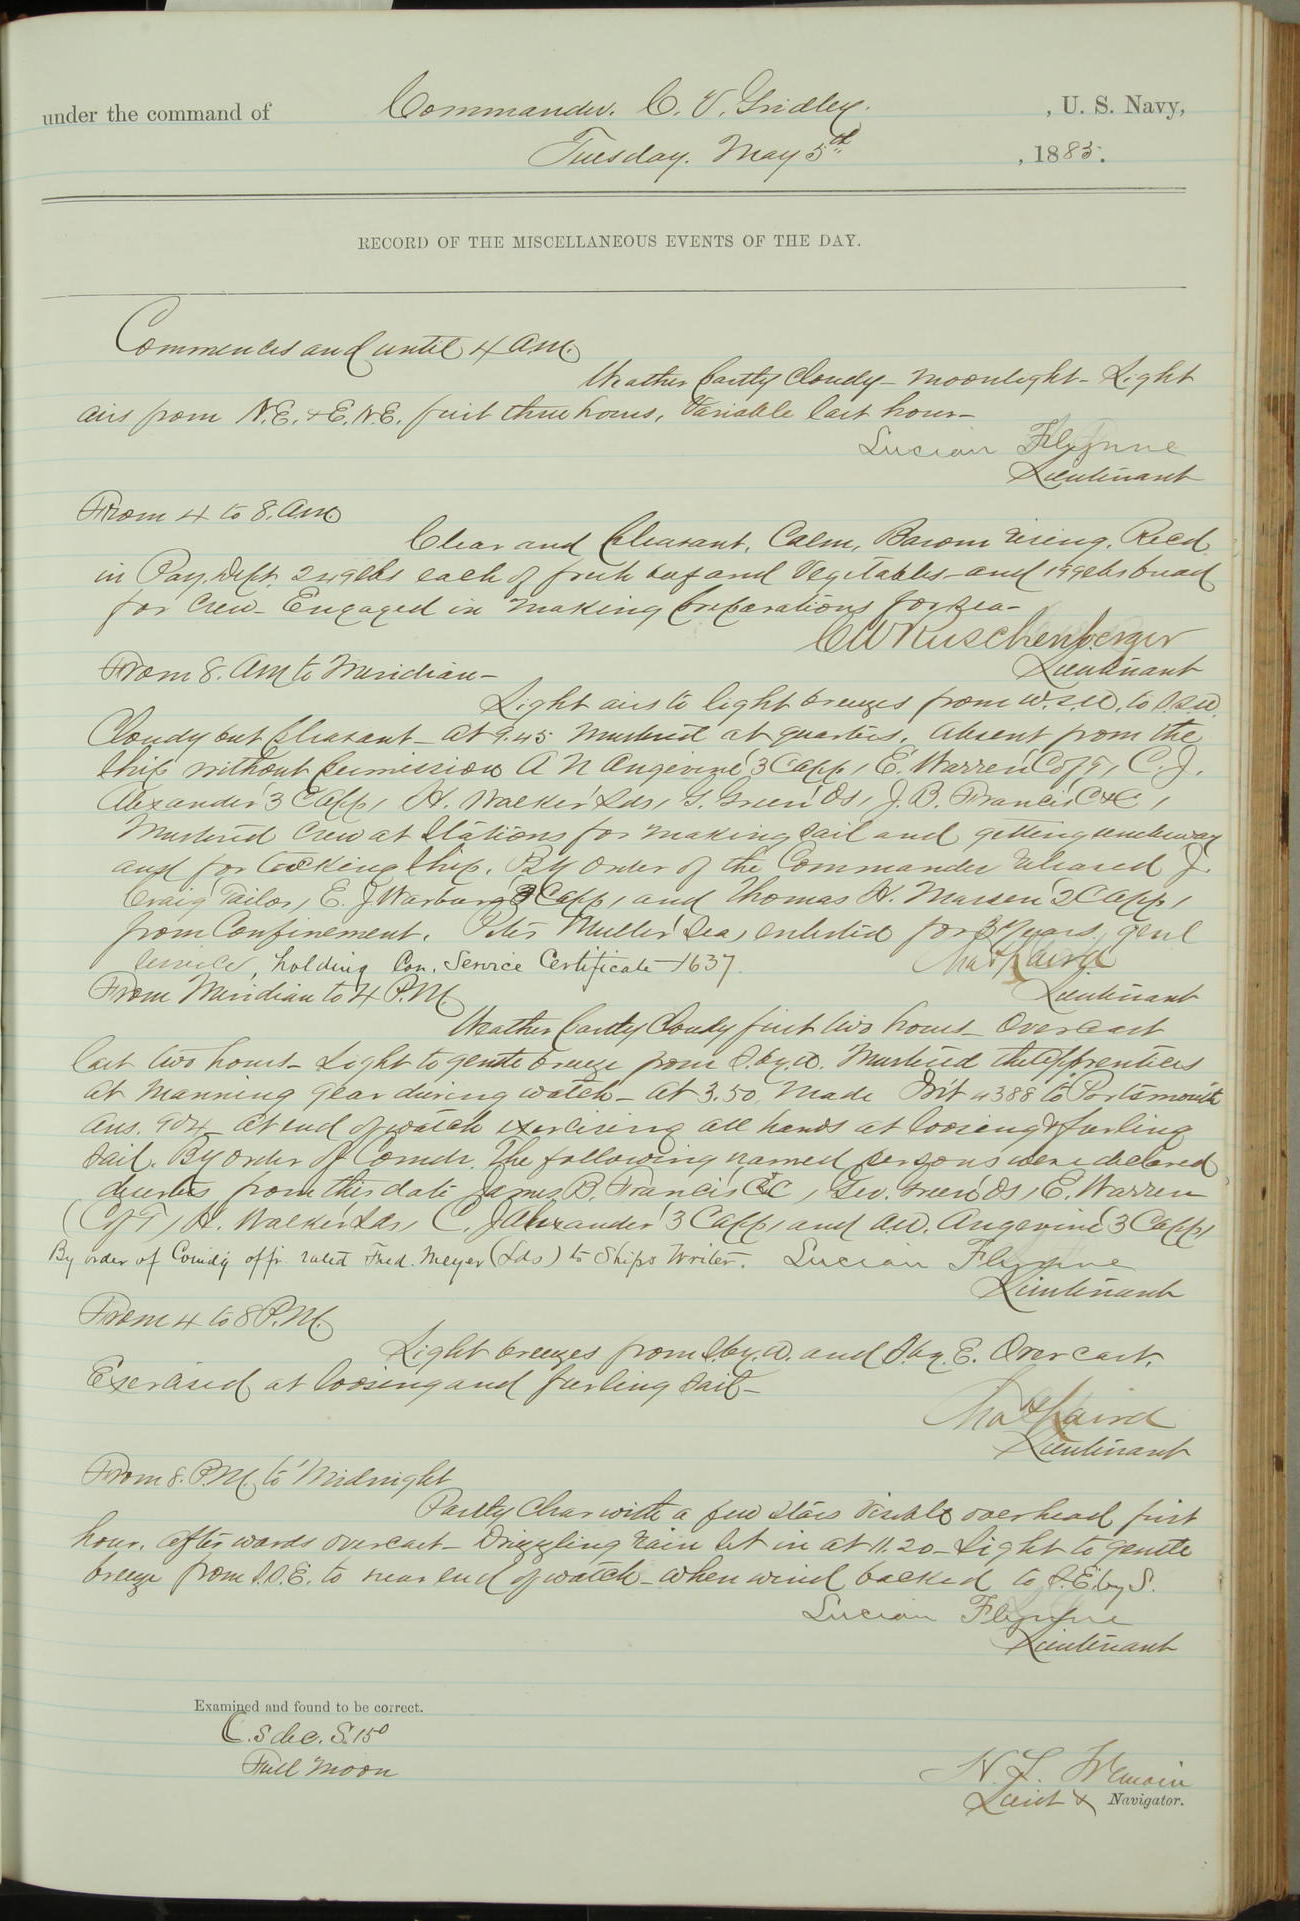 under the command of Commander. C. V. Gridley. , U. S. Navy,
Tuesday. May 5th , 1885.
RECORD OF THE MISCELLANEOUS EVENTS OF THE DAY.
Commences and until 4 a.m.
Weather partly cloudy - moonlight - Light
airs from N.E. & E.N.E. first three hours, Variable last hour -
Lucian Flynne
Lieutenant
From 4 to 8. a.m.
Clear and pleasant, Calm, Barom rising. Recd
in Pay. Dept. 249 lbs each of fresh beef and Vegetables - and 199 lbs bread
for crew - Engaged in making preparations for sea -
C W Ruschenberger
Lieutenant
From 8. am to Meridian -
Light airs to light breezes from W.S.W. to S.S.W.
Cloudy but pleasant - At 9.45 mustered at quarters, absent from the
ship without permission A N Angevine 3 C app, E. Warren C of T, C. J.
Alexander 3 C App, H. Walker Lds, G. Green OS, J. B. Francis
Mustered Crew at Stations for making sail and getting underway
and for tacking ship. By order of the Commander released J.
Craig Tailor, E. J Warburg 3 C app, and Thomas H. Massen 2 C app,
from Confinement. Peter Muller Sea, enlisted for 3 years, genl
service, holding Con. Service Certificate 1637.
Lieutenant
From Meridian to 4 P.M.
Weather partly cloudy first two hours - Overcast
last two hours - Light to gentle breeze from S. by. W. Mustered the Apprentices
at manning gear during watch - at 3.50, made 4388 to Portsmouth
Ans. 904 - At end of watch exercising all hands at loosing & furling
sail. By order of Comdr. The following named persons were declared
deserters from this date James B. Francis , Geo. Green OS, E. Warren
(C of T, H. Walker Lds, C. J Alexander 3 C app, and A.W. Angevine 3 C app,
By order of Comdg offr. rated Fred. Meyer (Lds) to Ships Writer. Lucian Flynne
Lieutenant
From 4 to 8 P.M.
Light breezes from S. by. W. and S. by. E. Overcast.
Exercised at loosing and furling sail -
Lieutenant
From 8. P.M. to Midnight
Partly Clear with a few stars visible overhead first
hour, afterwards overcast - Drizzling rain set in at 11.20 - Light to gentle
breeze from S.S.E. to near end of watch - when wind backed to S.E. by S.
Lucian Flynne
Lieutenant
Examined and found to be correct.
dec. S. 15°
Full Moon
Lieut & Navigator.